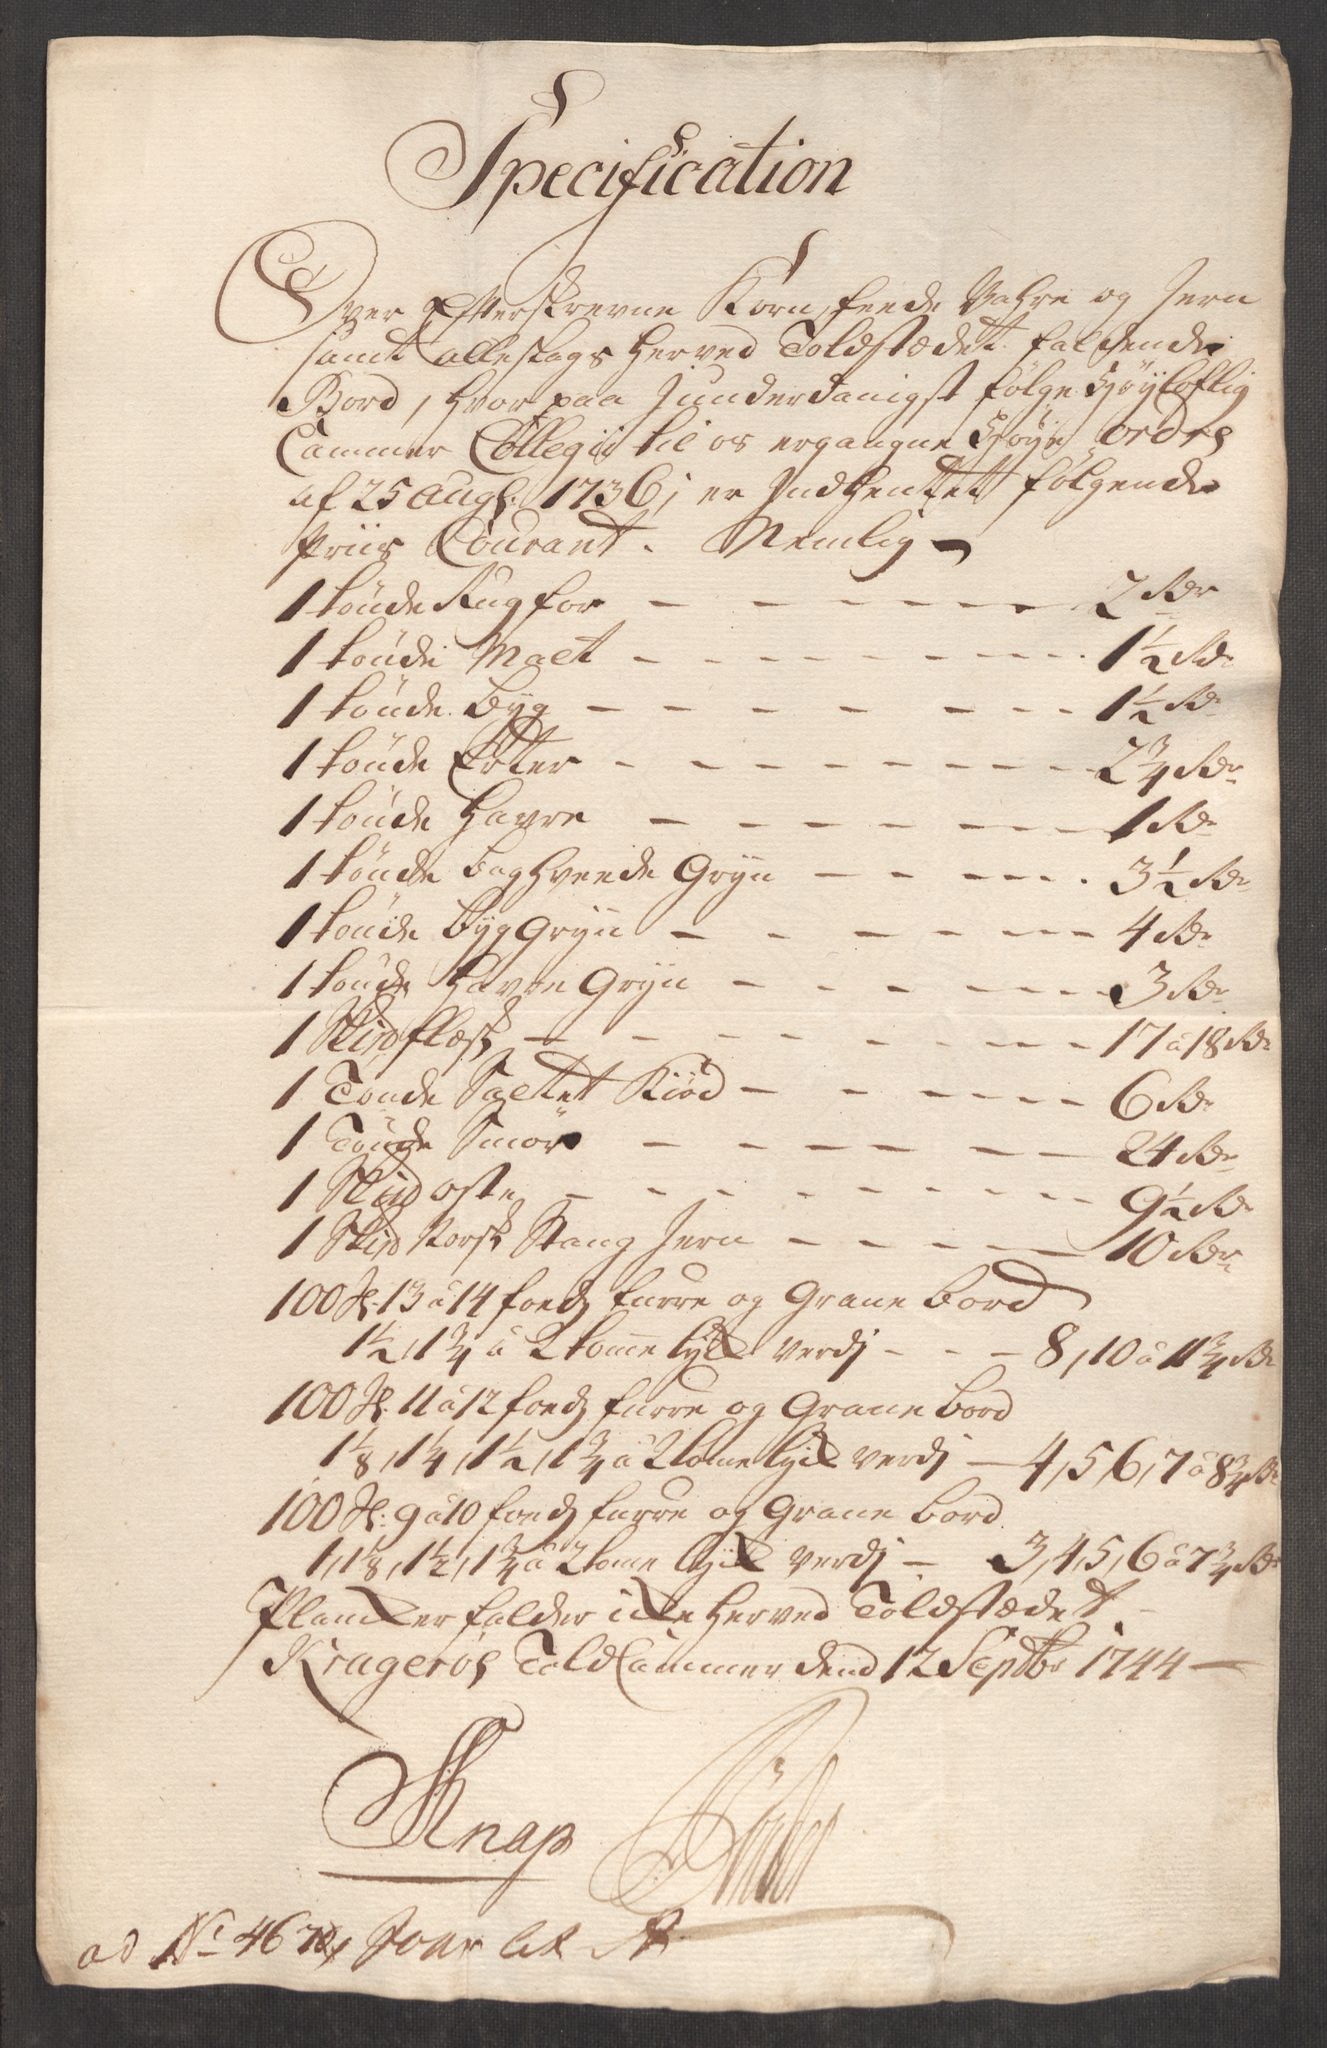 Specification
Over Efterskrevne Korn, feede Vahre og Jern
samt alleslags herved Toldstædet faldende
Bord, hvorpaa J underdanigst følge Høyloflig
Cammer Collegii til os ergangne Høye ordre
af 25 Aug: 1736, er Indhentet følgende
Priis Courant. Nemlig
1 tønde Rug for - - - - - - 2 Rdr
1 tønde Malt - - - - - - 1½ Rdr
1 tønde Byg - - - - - - 1½ Rdr
1 tønde Erter - - - - - - 2¾ Rdr
1 tønde Havre - - - - - - 1 Rdr
1 tønde Boghveede Gryn - - - - - 3½ Rdr
1 tønde Byg Gryn - - - - - - 4 Rdr
1 tønde Havre Gryn - - - - - 3 Rdr
1 Skpd flesk - - - - - - 17 à 18 Rdr
1 Tønde Saltet Kiød - - - - - 6 Rdr
1 Tønde Smør - - - - - - 24 Rdr
1 Skpd oste - - - - - - 9½ Rdr
1 Skpd Norsk Stang Jern - - - - - 10 Rdr
100 st: 13 à 14 foeds furre og Grane bord
1½, 1¾ à 2 tomme tyk verdj - - - 8, 10 à 11¾ Rdr
100 st: 11 à 12 foeds furre og Grane bord
1⅛, 1¼, 1½, 1¾ à 2 tome tyk verdj - 4, 5, 6, 7 à 8¾ Rdr
100 st: 9 à 10 foeds furre og Grane bord
1, 1⅛, 1½, 1¾ à 2 tome tyk verdj - 3, 4, 5, 6 à 7¾ Rdr
Planker falder ikke herved Toldstædet
Kragerøes Told Cammer dend 12 Septbr 1744
Knap
ad No 467